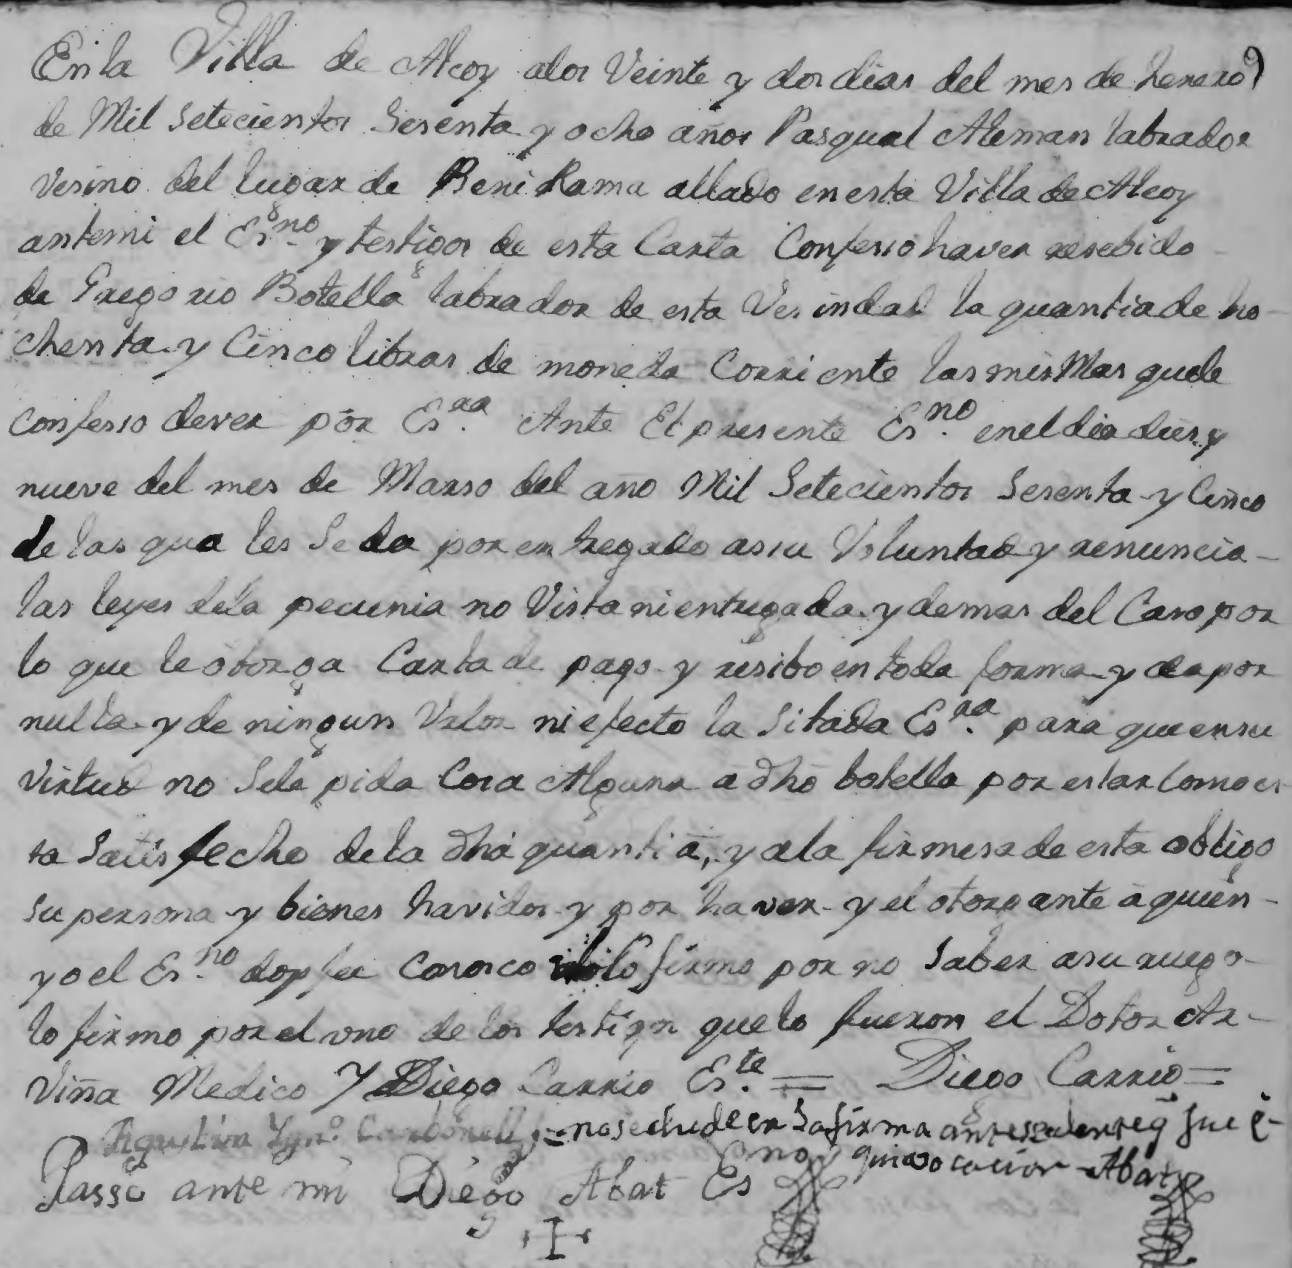 En la Villa de Alcoy alos Veinte y dos dias del mes de henero
de Mil Setecientos Sesenta y ocho años Pasqual Aleman labrador
Vesino del lugar de Beni Rama allado en esta Villa de Alcoy
antemi el Es.no y testigos de esta Carta Confeso haver resebido
de Gregorio Botella labrador de esta Vesindad la quantia de ho
chenta y Cinco libras de moneda Corriente las mismas que le
confeso dever por Es.ra Ante El presente Es.no en el dia dies y
nueve del mes de Marso del año Mil Setecientos Sesenta y Cinco
de las qua les Se da por entregado asu Voluntad y renuncia
las leyes dela pecunia no Vista ni entregada y demas del Caso por
lo que le otorga Carta de pago y resibo en toda forma y da por
nulla y de ningun Valor ni efecto la Sitada Es.ra para que en su
Virtud no Sele pida Cosa Alguna a dho botella por estar como es
ta Satisfecho dela dha quantia, y ala firmesa de esta obligo
Su persona y bienes havidos y por haver y el otorgante a quien
yo el Es.no doy fee Conosco no lo firmo por no Saber asu ruego
lo firmo por el uno de los testigos que lo fueron el Dotor Ar
Viña Medico Y Diego Carrio Es.te = Diego Carrio =
Agustin Ygn.o Carbonell = no se dude en la firma que fue e
quivocacion Abat
Passó ante mi Diego Abat Es.no